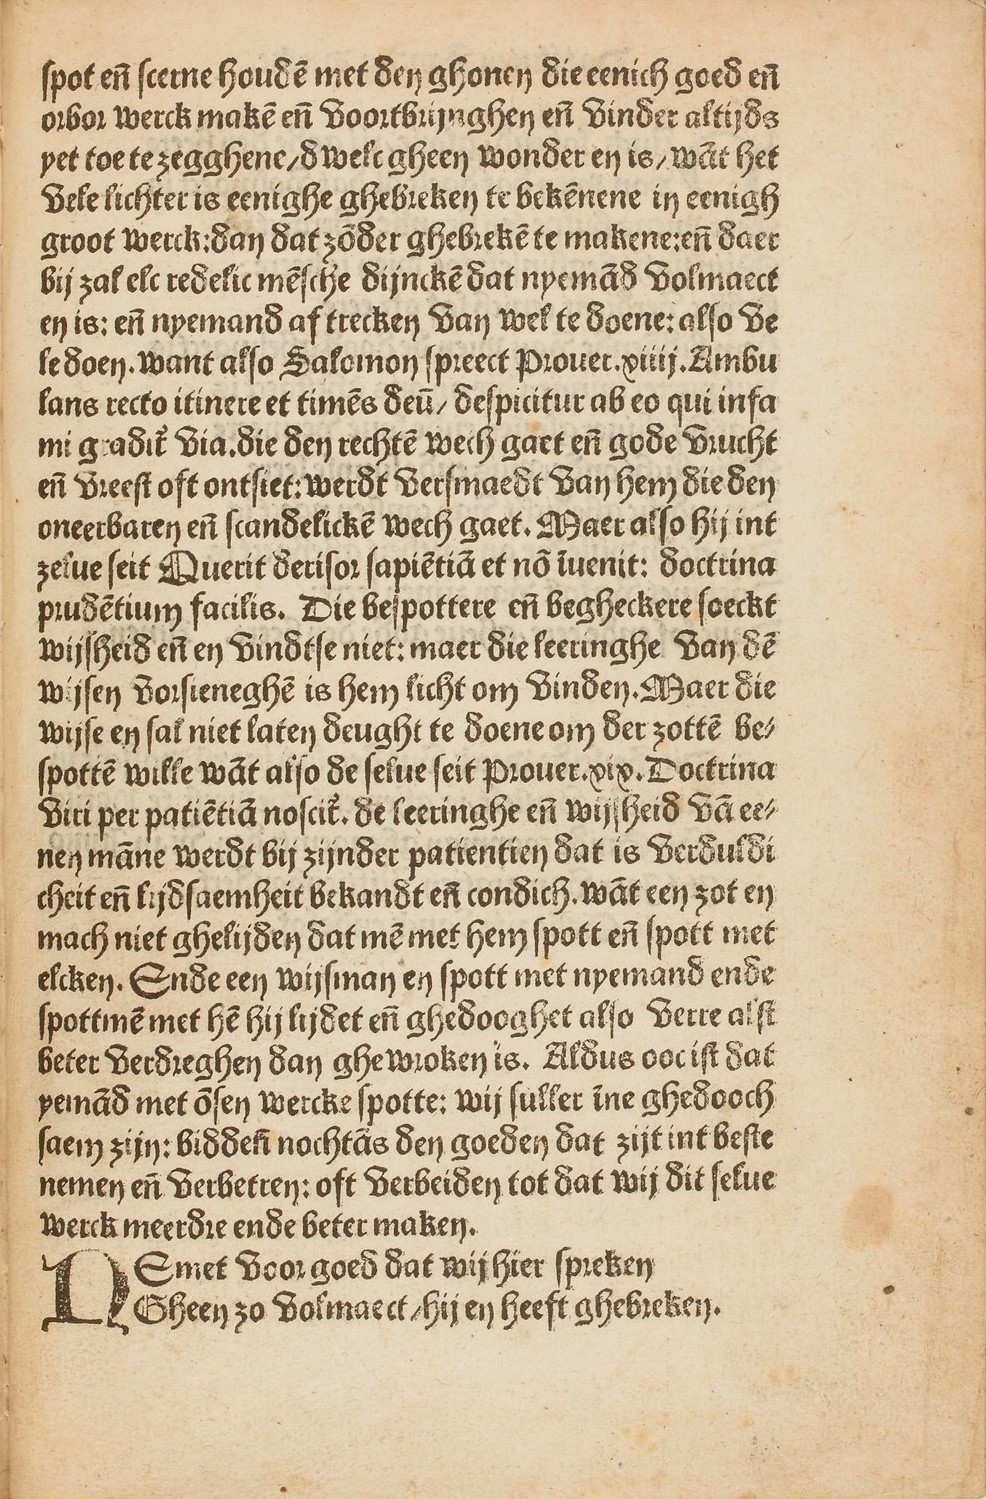 spot eñ scerne houdē met den ghonen die eenich goed eñ
orbor werck makē eñ voortbrijnghen eñ vinder altijds
yet toe te zegghene/dwelc gheen wonder en is/wāt het
vele lichter is eenighe ghebreken te bekēnene in eenigh
groot werck:dan dat zōder ghebrekē te makene:eñ daer
bij zal elc redelic mēsche dijnckē dat nyemād volmaect
en is: eñ nyemand af trecken van wel te doene: also ve
le doen. want also Salomon spreect Prouer.xiiij.Ambu
lans recto itinere et timēs deū/ despicitur ab eo qui infa
mi gradit᷑ via.die den rechtē wech gaet eñ gode vrucht
eñ vreest oft ontsiet: werdt versmaedt van hem die den
oneerbaren eñ scandelickē wech gaet. Maer also hij int
zelue seit Querit derisor sapiētiā et nō īuenit: doctrina
prudētium facilis. Die bespottere eñ begheckere soeckt
wijsheid eñ en vindtse niet: maer die leeringhe van dē
wijsen vorsieneghē is hem licht om vinden. Maer die
wijse en sal niet laten deught te doene om der zottē be/
spottē wille wāt also de selue seit Prouer.xix. Doctrina
viri per patiētiā noscit᷑. de leeringhe eñ wijsheid vā ee/
nen māne werdt bij zijnder patientien dat is verduldi
cheit eñ lijdsaemheit bekandt eñ condich. wāt een zot en
mach niet ghelijden dat mē met hem spott eñ spott met
elcken. Ende een wijsman en spott met nyemand ende
spottmē met hē hij lijdet eñ ghedooghet also verre alst
beter verdreghen dan ghewroken is. Aldus ooc ist dat
yemād met ōsen wercke spotte: wij suller īne ghedooch
saem zijn: biddeñ nochtās den goeden dat zijt int beste
nemen eñ verbetren: oft verbeiden tot dat wij dit selue
werck meerdre ende beter maken.
NEmet voor goed dat wij hier spreken
Gheen zo volmaect/hij en heeft ghebreken.